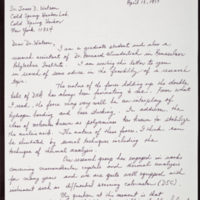 April 15, 1977
Dr. James D. Watson
Cold Spring Harbor Lab.
Cold Spring Harbor
New York 11724
Dear Dr. Watson,
I am a graduate student and also a
research assistant of Dr. Bernard Wunderlich in Rensselaer
Polytechnic Institute. I am writing this letter to you
in need of some advice in the feasibility of a research
topic.
The nature of the forces holding up the double
helix of DNA has always been fascinating to me. From what
I read, the force very well be an interplay of
hydrogen bonding and base stacking. In addition, a
class of molecules known as polyamines has known to stabilize
the nucleic acid. The nature of this force, I think, can
be elucidated by several techniques including the
technique of thermal analysis.
Our research group has engaged in works
concerning macromolecular crystals and thermal analysis
for many years and we are quite well equipped with
instrument such as differential scanning calorimeters (DSC).
My question at the moment is that